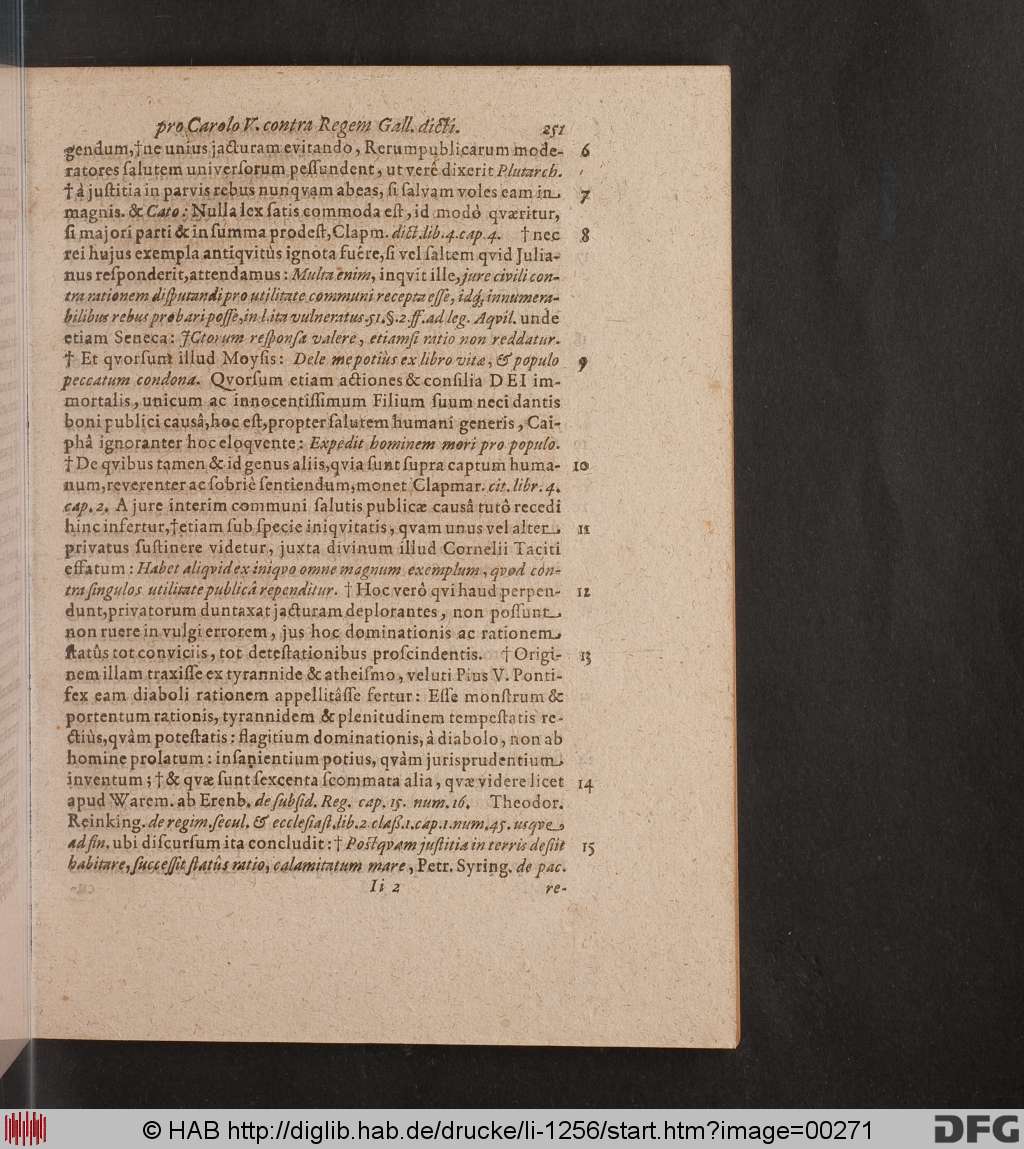 pro Carolo V. contra Regem Gall. dicti. 251
gendum,†ne unius jacturam evitando, Rerumpublicarum mode- 6
ratores ſalutem univerſorum peſſundent, ut verè dixerit Plutarch.
† à juſtitia in parvis rebus nunqvam abeas, ſi ſalvam voles eam in 7
magnis. & Cato: Nulla lex ſatis commoda eſt, id modò qværitur,
ſi majori parti & in ſumma prodeſt, Clapm. dict. lib. 4. cap. 4. † nec 8
rei hujus exempla antiqvitùs ignota fuêre, ſi vel ſaltem qvid Julia-
nus reſponderit, attendamus: Multa enim, inqvit ille, jure civili con-
tra rationem diſputandi pro utilitate communi recepta eſſe, idq́; innumera-
bilibus rebus probari poſſe, in l. ita vulneratus. 51. §. 2. ff. ad leg. Aqvil. unde
etiam Seneca: JCtorum reſponſa valere, etiamſi ratio non reddatur.
† Et qvorſum illud Moyſis: Dele me potiùs ex libro vitæ, & populo 9
peccatum condona. Qvorſum etiam actiones & conſilia DEI im-
mortalis, unicum ac innocentiſſimum Filium ſuum neci dantis
boni publici causâ, hoc eſt, propter ſalutem humani generis, Cai-
phâ ignoranter hoc eloqvente: Expedit hominem mori pro populo.
† De qvibus tamen & id genus aliis, qvia ſunt ſupra captum huma- 10
num, reverenter ac ſobriè ſentiendum, monet Clapmar. cit. libr. 4.
cap. 2. A jure interim communi ſalutis publicæ causâ tutô recedi
hinc infertur,†etiam ſub ſpecie iniqvitatis, qvam unus vel alter 11
privatus ſuſtinere videtur, juxta divinum illud Cornelii Taciti
effatum: Habet aliqvid ex iniqvo omne magnum exemplum, qvod con-
tra ſingulos utilitate publicâ rependitur. † Hoc verô qvi haud perpen- 12
dunt, privatorum duntaxat jacturam deplorantes, non poſſunt
non ruere in vulgi errorem, jus hoc dominationis ac rationem
ſtatûs tot conviciis, tot deteſtationibus proſcindentis. † Origi- 13
nem illam traxiſſe ex tyrannide & atheiſmo, veluti Pius V. Ponti-
fex eam diaboli rationem appellitâſſe fertur: Eſſe monſtrum &
portentum rationis, tyrannidem & plenitudinem tempeſtatis re-
ctiùs, qvàm poteſtatis: flagitium dominationis, à diabolo, non ab
homine prolatum: inſanientium potius, qvàm jurisprudentium
inventum; † & qvæ ſunt ſexcenta ſcommata alia, qvæ videre licet 14
apud Warem. ab Erenb. de ſubſid. Reg. cap. 15. num. 16. Theodor.
Reinking. de regim. ſecul. & eccleſiaſt. lib. 2 claß. 1. cap. 1. num. 45. usqve
ad fin. ubi diſcurſum ita concludit: † Poſtqvam juſtitia in terris deſiit 15
habitare, ſucceſſit ſtatûs ratio, calamitatum mare, Petr. Syring. de pac.
Ii 2 re-
© HAB http://diglib.hab.de/drucke/li-1256/start.htm?image=00271 DFG